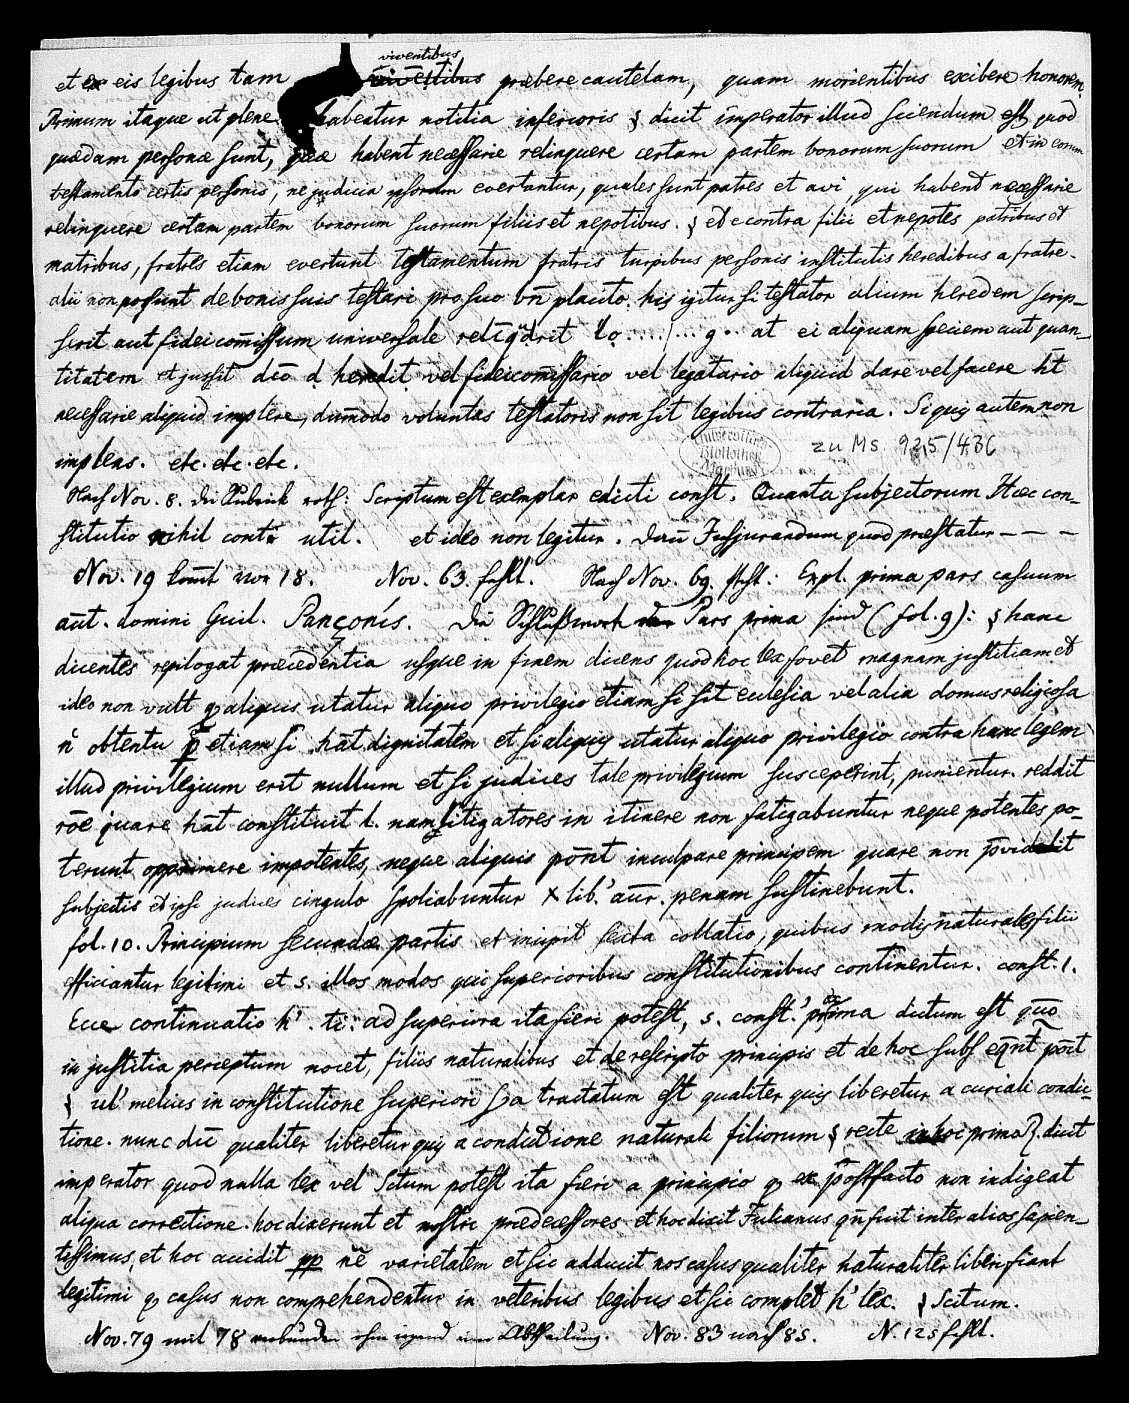 viventibus
et ex eis legibus tam viventibus præbere cautelam, quam morientibus exibere honorem.
Primum itaque ut plene habeatur notitia inferioris § dicit imperator illud sciendum est quod
quædam personæ sunt, quæ habent necessarie relinquere certam partem bonorum suorum et in eorum
testamento certis personis, ne judicia ipsorum evertantur, quales sunt patres et avi, qui habent necessarie
relinquere certam partem bonorum suorum filiis et nepotibus. § et e contra filii et nepotes patribus et
matribus, fratres etiam evertunt testamentum fratris turpibus personis institutis heredibus a fratre.
alii non possunt de bonis suis testari pro suo bñ placito. his igitur si testator alium heredem scrip-
serit aut fidei com̄issum universale at ei aliquam speciem aut quan-
titatem et jussit vel fideicom̄issario vel legatario aliquid dare vel facere ht̄
necessarie aliquid implere, dum̄odo voluntas testatoris non sit legibus contraria. Si quis autem non
impleas. etc. etc. etc.
Universitäts Bibliothek Marburg
zu Ms 925/436
Nach Nov. 8. die Rubrik roth: Scriptum est exemplar edicti const. Quanta subjectorum Hæc con-
stitutio nihil util. et ideo non legitur. dann Jusjurandum quod præstatur - - -
Nov. 19 kom̄t vor 18. Nov. 63. fehlt. Nach Nov. 69. steht: Expl. prima pars casuum
aut̄. domini Guil. Pançonis. Die Schlußworte der Pars prima sind (fol. 9): § hanc
dicentes epilogat præcedentia usque in finem dicens quod hoc lex fovet magnam justitiam et
ideo non vult aliquis utatur aliquo privilegio etiam si sit ecclesia vel alia domus religiosa
obtentu etiam si hāt dignitatem et si aliquis utatur aliquo privilegio contra hanc legem
illud privilegium erit nullum et si judices tale privilegium susceperint, punientur. reddit
rōe quare hāt constituit l. nam litigatores in itinere non fatigabuntur neque potentes po-
terunt opprimere impotentes, neque aliquis inculpare principem quare non
subjectis et ipsi judices cingulo spoliabuntur X lib.' aur̄. penam sustinebunt.
fol. 10. Principium secundæ partis et incipit sexta collatio, quibus modis naturales filii
efficiantur legitimi et s. illos modos qui superioribus constitutionibus continentur. const. 1.
Ecce continuatio h'. ti: ad superiora ita fieri potest, s. const.' prima dictum est
injustitia perceptum nocet, filiis naturalibus et de rescripto principis et de hoc
§ ul' melius in constitutione superiori tractatum est qualiter quis liberetur a curiali condic-
tione. nunc qualiter liberetur quis a condictione naturali filiorum § recte in hoc prima §. dicit
imperator quod nulla lex vel Scitum potest ita fieri a principio ex postfacto non indigeat
aliqua correctione. hoc dixerunt et nostri prædecessores et hoc dixit Julianus fuit inter alios sapien-
tissimus, et hoc accidit varietatem et sic adducit nos casus qualiter naturaliter liberi fiant
legitimi casus non comprehendentur in veteribus legibus et sic complet h' lex. § Scitum.
Nov. 79 mit 78 verbunden ohne irgend eine Abtheilung. Nov. 83 nach 85. N. 125 fehlt.